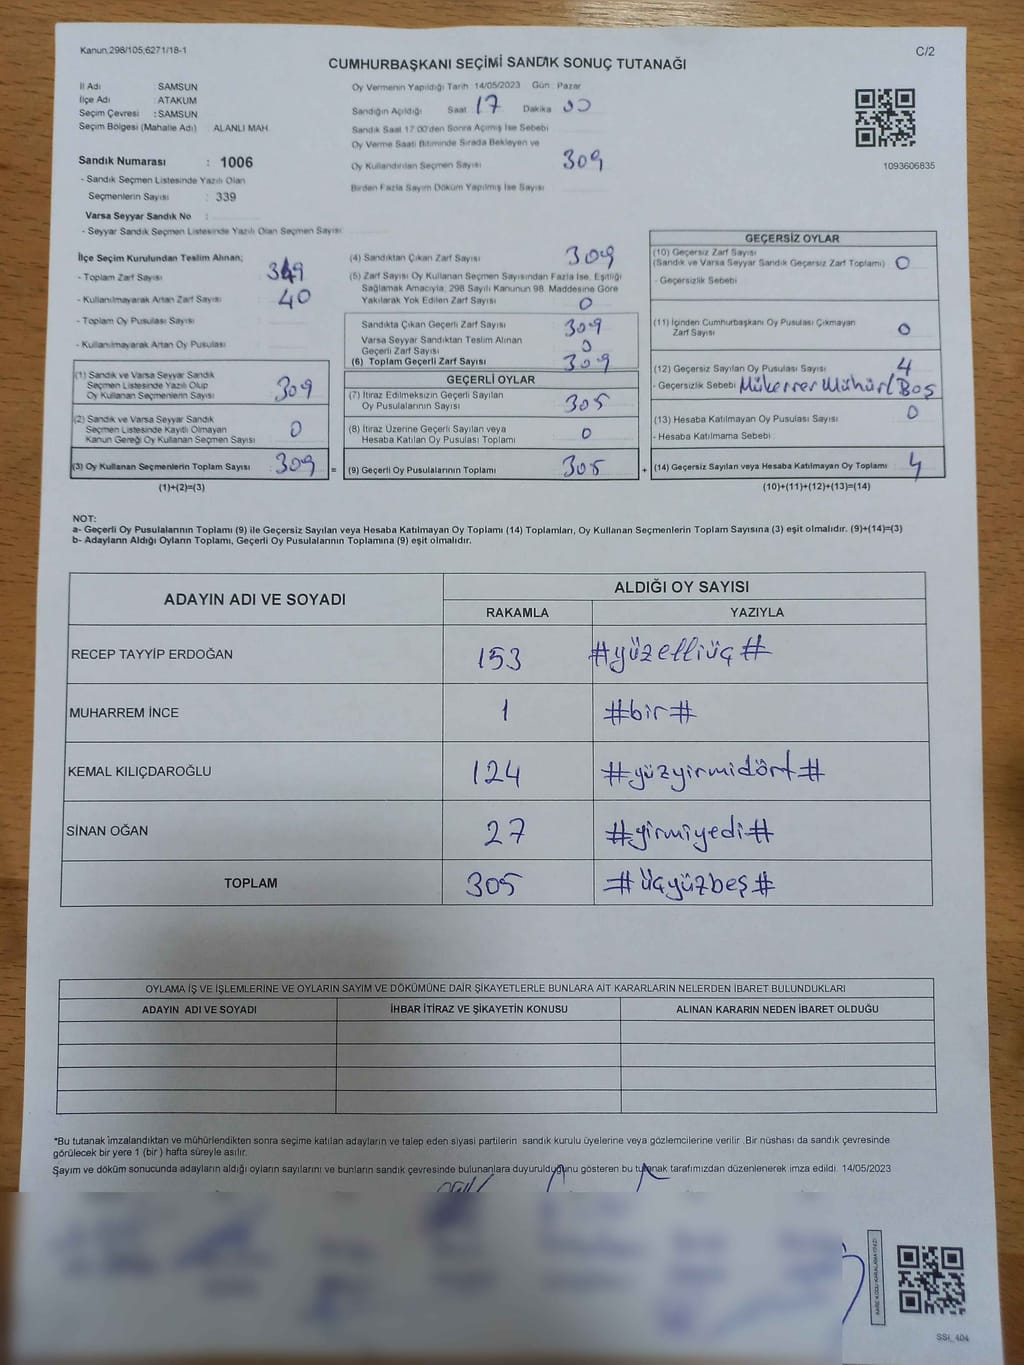 Kanun,298/105;6271/18-1
C/2
CUMHURBAŞKANI SEÇİMİ SANDIK SONUÇ TUTANAĞI
İl Adı SAMSUN
İlçe Adı : ATAKUM
Seçim Çevresi : SAMSUN
Seçim Bölgesi (Mahalle Adı) ALANLI MAH
Sandık Numarası : 1006
- Sandık Seçmen Listesinde Yazılı Olan
Seçmenlerin Sayısı : 339
Varsa Seyyar Sandık No :
- Seyyar Sandık Seçmen Listesinde Yazılı Olan Seçmen Sayısı
Oy Vermenin Yapıldığı Tarih 14/05/2023 Gün : Pazar
Sandığın Açıldığı Saat 17 Dakika 00
Sandık Saat 17:00'den Sonra Açımış İse Sebebi
Oy Verme Saati Bitiminde Sırada Bekleyen ve
Oy Kullandırılan Seçmen Sayısı 309
Birden Fazla Sayım Döküm Yapılmış İse Sayısı
1093606835
İlçe Seçim Kurulundan Teslim Alınan;
- Toplam Zarf Sayısı 349
- Kullanılmayarak Artan Zarf Sayısı 40
- Toplam Oy Pusulası Sayısı
- Kullanılmayarak Artan Oy Pusulası
(1) Sandık ve Varsa Seyyar Sandık
Seçmen Listesinde Yazılı Olup
Oy Kullanan Seçmenlerin Sayısı 309
(2) Sandık ve Varsa Seyyar Sandık
Seçmen Listesinde Kayıtlı Olmayan
Kanun Gereği Oy Kullanan Seçmen Sayısı 0
(3) Oy Kullanan Seçmenlerin Toplam Sayısı 309 =
(1)+(2)=(3)
(4) Sandıktan Çıkan Zarf Sayısı 309
(5) Zarf Sayısı Oy Kullanan Seçmen Sayısından Fazla İse, Eşitliği
Sağlamak Amacıyla, 298 Sayılı Kanunun 98. Maddesine Göre
Yakılarak Yok Edilen Zarf Sayısı 0
Sandıkta Çıkan Geçerli Zarf Sayısı 309
Varsa Seyyar Sandıktan Teslim Alınan
Geçerli Zarf Sayısı 0
(6) Toplam Geçerli Zarf Sayısı 309
GEÇERLİ OYLAR
(7) İtiraz Edilmeksizin Geçerli Sayılan
Oy Pusulalarının Sayısı 305
(8) İtiraz Üzerine Geçerli Sayılan veya
Hesaba Katılan Oy Pusulası Toplamı 0
(9) Geçerli Oy Pusulalarının Toplamı 305 +
GEÇERSİZ OYLAR
(10) Geçersiz Zarf Sayısı
(Sandık ve Varsa Seyyar Sandık Geçersiz Zarf Toplamı) 0
- Geçersizlik Sebebi
(11) İçinden Cumhurbaşkanı Oy Pusulası Çıkmayan
Zarf Sayısı 0
(12) Geçersiz Sayılan Oy Pusulası Sayısı 4
- Geçersizlik Sebebi Mükerrer Mühür/Boş
(13) Hesaba Katılmayan Oy Pusulası Sayısı 0
- Hesaba Katılmama Sebebi
(14) Geçersiz Sayılan veya Hesaba Katılmayan Oy Toplamı 4
(10)+(11)+(12)+(13)=(14)
NOT:
a- Geçerli Oy Pusulalarının Toplamı (9) ile Geçersiz Sayılan veya Hesaba Katılmayan Oy Toplamı (14) Toplamları, Oy Kullanan Seçmenlerin Toplam Sayısına (3) eşit olmalıdır. (9)+(14)=(3)
b- Adayların Aldığı Oyların Toplamı, Geçerli Oy Pusulalarının Toplamına (9) eşit olmalıdır.
ADAYIN ADI VE SOYADI ALDIĞI OY SAYISI
RAKAMLA YAZIYLA
RECEP TAYYİP ERDOĞAN 153 #yüzelliüç#
MUHARREM İNCE 1 #bir#
KEMAL KILIÇDAROĞLU 124 #yüzyirmidört#
SİNAN OĞAN 27 #yirmiyedi#
TOPLAM 305 #üçyüzbeş#
OYLAMA İŞ VE İŞLEMLERİNE VE OYLARIN SAYIM VE DÖKÜMÜNE DAİR ŞİKAYETLERLE BUNLARA AİT KARARLARIN NELERDEN İBARET BULUNDUKLARI
ADAYIN ADI VE SOYADI İHBAR İTİRAZ VE ŞİKAYETİN KONUSU ALINAN KARARIN NEDEN İBARET OLDUĞU
*Bu tutanak imzalandıktan ve mühürlendikten sonra seçime katılan adayların ve talep eden siyasi partilerin sandık kurulu üyelerine veya gözlemcilerine verilir .Bir nüshası da sandık çevresinde
görülecek bir yere 1 (bir ) hafta süreyle asılır.
Sayım ve döküm sonucunda adayların aldığı oyların sayılarını ve bunların sandık çevresinde bulunanlara duyurulduğunu gösteren bu tutanak tarafımızdan düzenlenerek imza edildi. 14/05/2023
KARE KODU KARALAMAYINIZ!
SSI_404